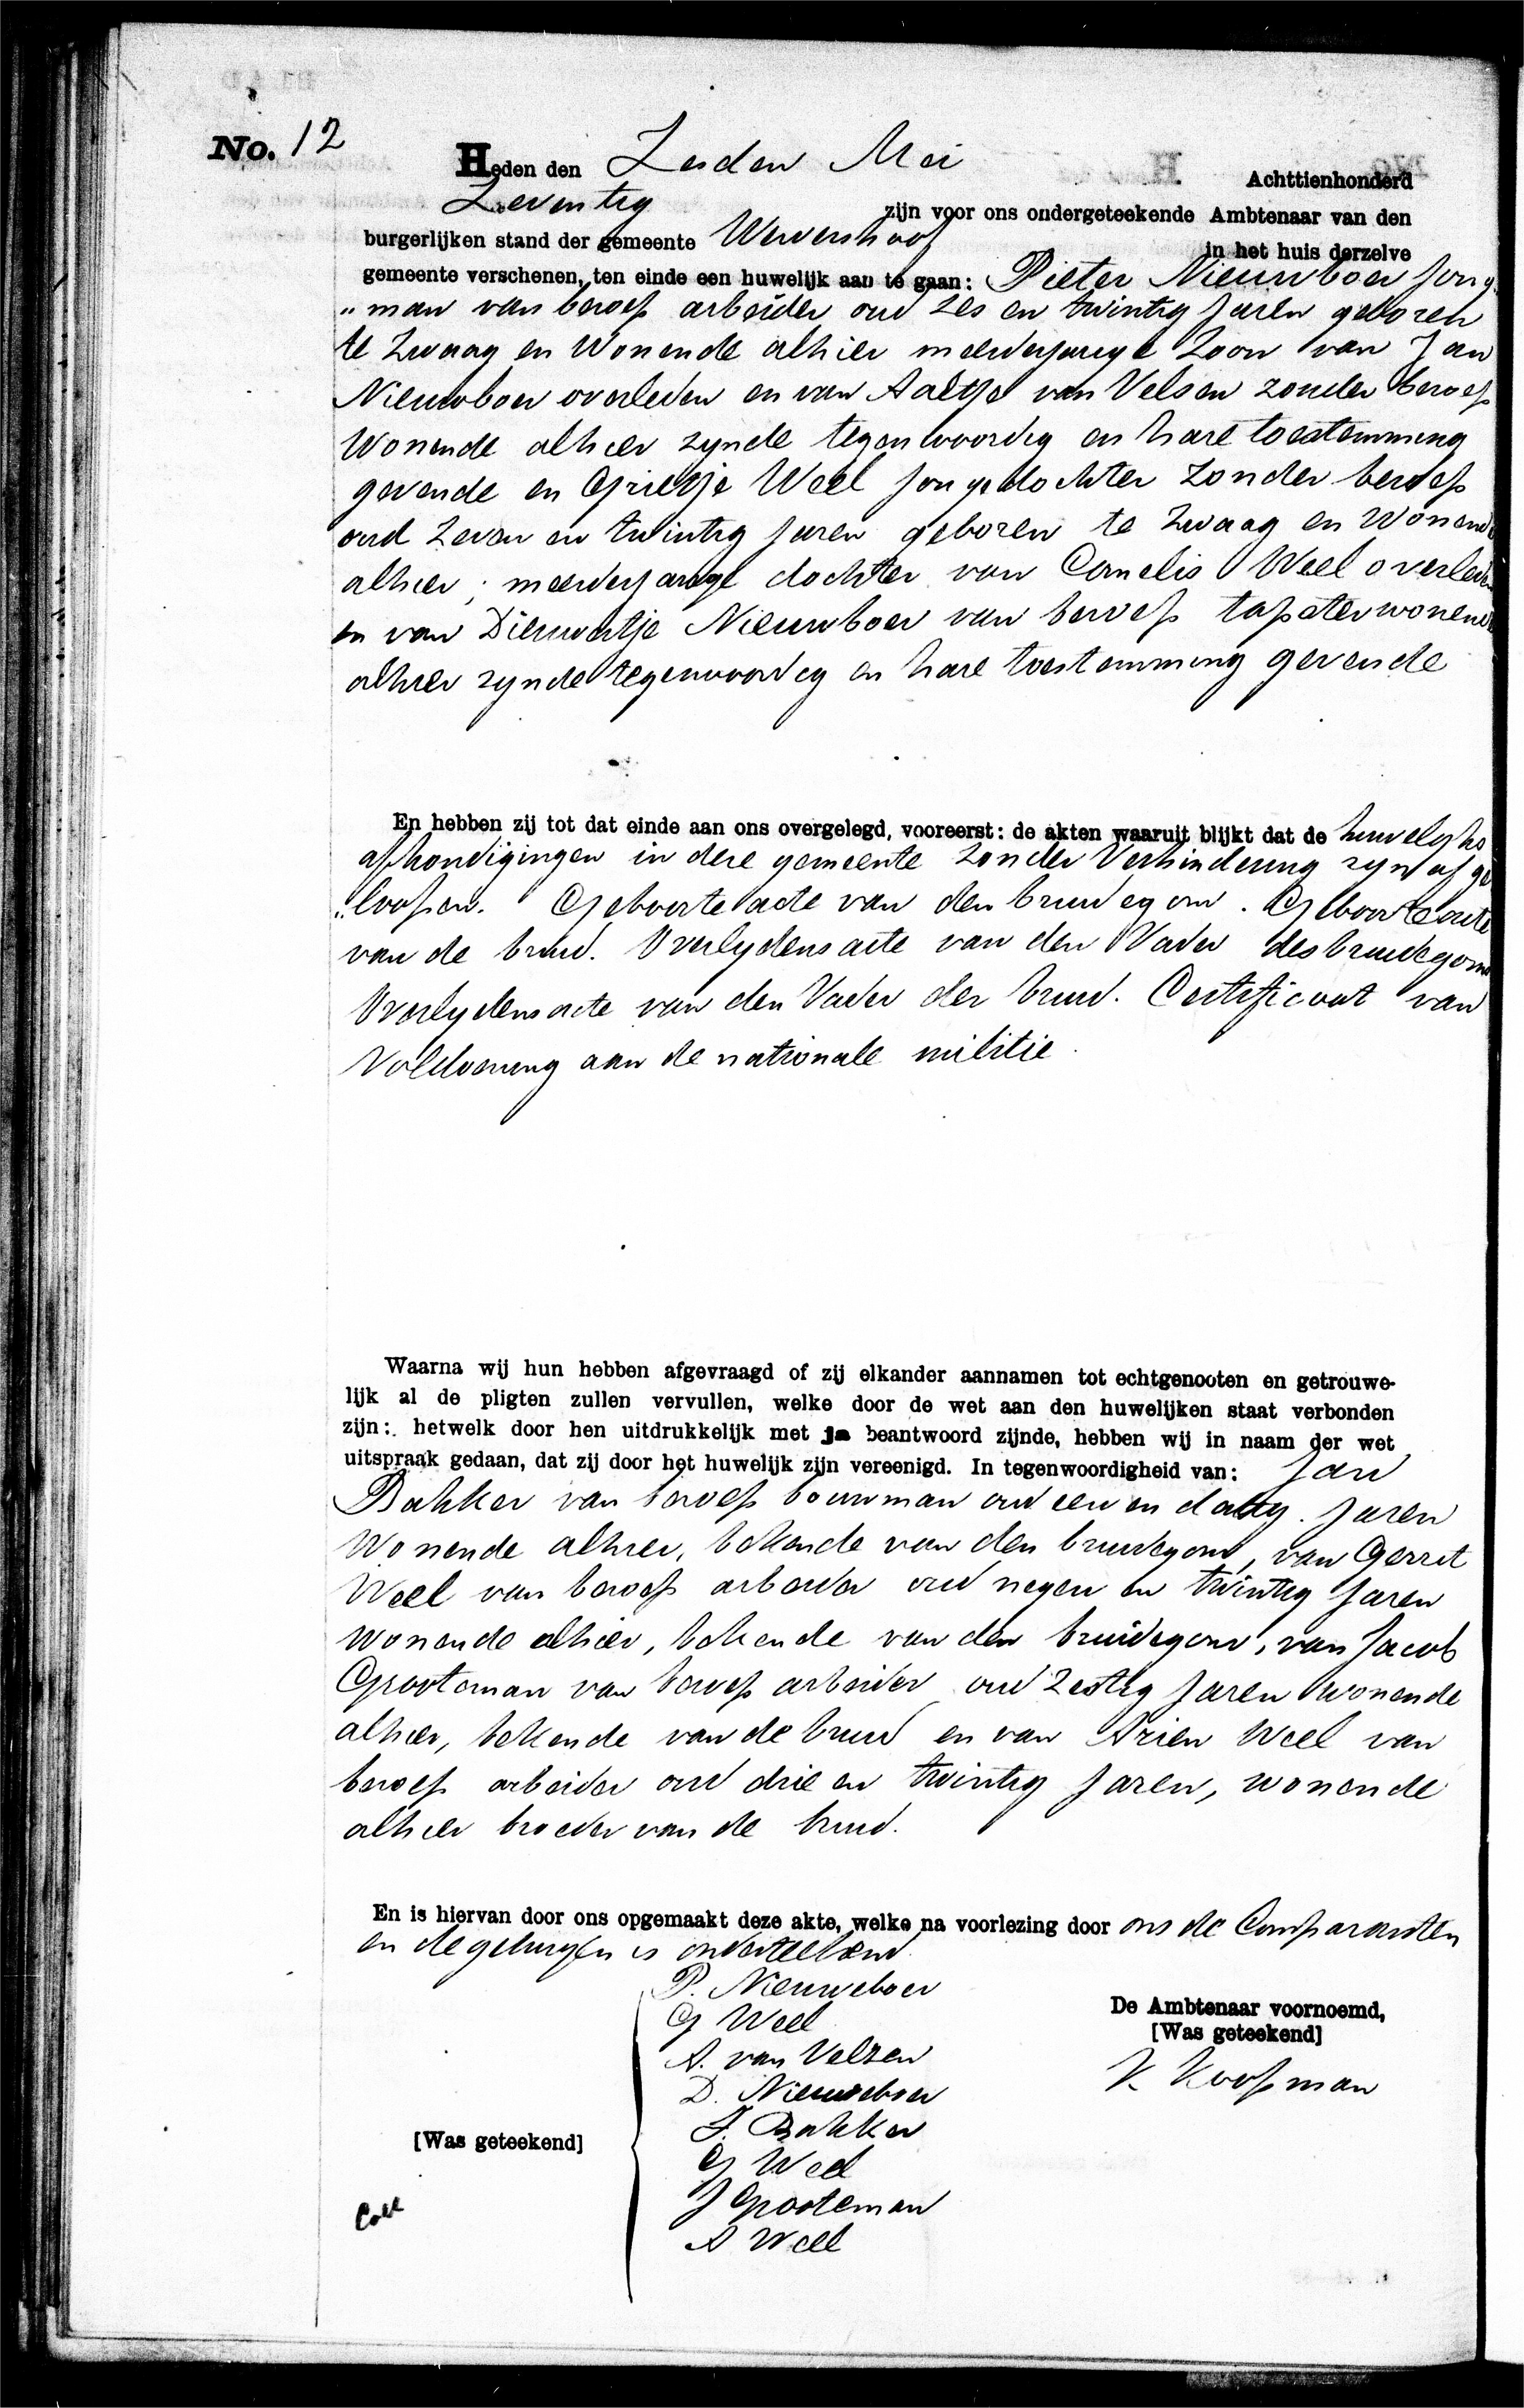 No. 12
Heden den Zesden Mei Achttienhonderd
Zeventig zijn voor ons ondergeteekende Ambtenaar van den
burgerlijken stand der gemeente Wervershoof in het huis derzelve
gemeente verschenen, ten einde een huwelijk aan te gaan: Pieter Nieuwboer Jong
"man van beroep arbeider oud zes en twintig Jaren geboren
te Zwaag en Wonende alhier meerderjarige Zoon van Jan
Nieuwboer overleden en van Aaltje van Velsen zonder beroep
Wonende alhier zynde tegenwoordig en hare toestemming
gevende en Grietje Weel Jongedochter Zonder beroep
oud Zeven en twintig Jaren geboren te Zwaag en Wonende
alhier; meerderjarige dochter van Cornelis Weel overleden
en van Dieuwertje Nieuwboer van beroep tapster wonende
alhier zynde tegenwoordig en hare toestemming gevende
En hebben zij tot dat einde aan ons overgelegd, vooreerst: de akten waaruit blijkt dat de huwelyks
afkondigingen in deze gemeente Zonder Verhindering zyn af ge
"loopen. Geboorte acte van den bruidegom. Geboorte acte
van de bruid. Overlydens acte van den Vader des bruidegoms
Overlydens acte van den Vader der bruid. Certificaat van
Voldoening aan de nationale militie.
Waarna wij hun hebben afgevraagd of zij elkander aannamen tot echtgenooten en getrouwe-
lijk al de pligten zullen vervullen, welke door de wet aan den huwelijken staat verbonden
zijn: hetwelk door hen uitdrukkelijk met ja beantwoord zijnde, hebben wij in naam der wet
uitspraak gedaan, dat zij door het huwelijk zijn vereenigd. In tegenwoordigheid van: Jan
Bakker van beroep bouwman oud een en dertig Jaren
Wonende alhier, bekende van den bruidegom, van Gerrit
Weel van beroep arbeider oud negen en twintig Jaren
wonende alhier, bekende van den bruidegom, van Jacob
Grooteman van beroep arbeider oud Zestig Jaren Wonende
alhier, bekende van de bruid en van Arien Weel van
beroep arbeider oud drie en twintig Jaren, wonende
alhier broeder van de bruid.
En is hiervan door ons opgemaakt deze akte, welke na voorlezing door ons de Comparanten
en de getuigen is onderteekend.
P. Nieuweboer
G Weel
A. van Velzen
D. Nieuweboer
J. Bakker
G Weel
J Grooteman
A Weel
[Was geteekend]
De Ambtenaar voornoemd,
[Was geteekend]
K Koopman
Coll